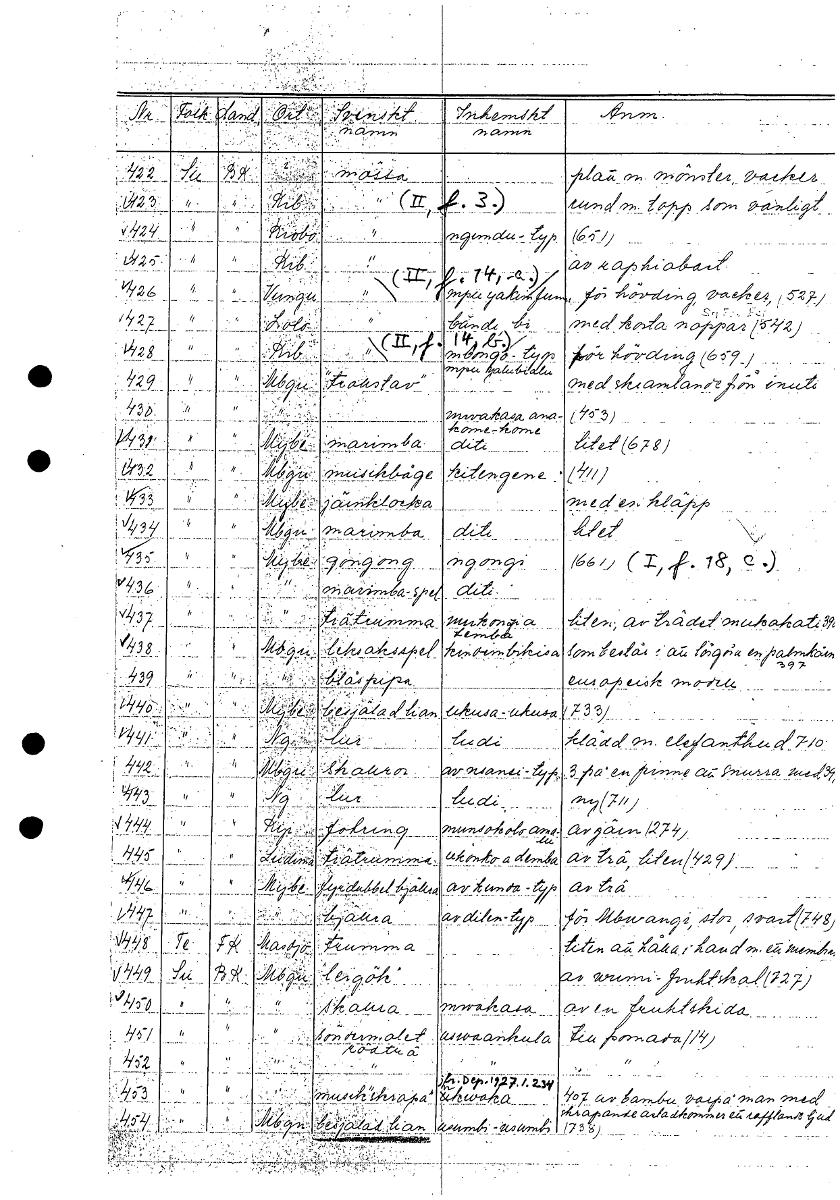 Nr Folk Land Ort Svenskt namn Inhemskt namn Anm.
422 Su BK " mössa plan m. mönster, vacker
423 " " Kib " (II, f. 3.) rund m. topp som vanligt
424 " " " ngundu-typ (651)
425 " " Kib " av raphiabast
(II, f. 14, a.)
426 " " Vungu " mpu för hövding, vacker, (527)
427 " " Lolo " bandi bi med korta noppar (542)
(II, f. 14, b.)
428 " " Kib " mbongo-typ för hövding (659)
mpu
429 " " Mbgu "trollstav" med skramlande frön inuti
430 " " " mwakasa ana- (453)
kome-kome
431 " " Mybe marimba diti litet (678)
432 " " Mbgu musikbåge kitengene (411)
433 " " Mybe järnklocka med en kläpp
434 " " Mbgu marimba diti litet
435 " " Mybe gongong ngongi (661) (I, f. 18, c.)
436 " " " marimba-spel diti
437 " " " trätrumma mukongia liten, av trädet mukakati
temba
438 " " Mbgu leksaksspel kinwimbikisa som består i att
397
439 " " " blåspipa europeisk modell
440 " " Mybe besjälad lian ukusa-ukusa (733)
441 " " Ng lur ludi klädd m. elefanthud 710
442 " " Mbgu skallror av nsansi-typ 3 på en pinne att snurra med
443 " " Ng lur ludi ny (711)
444 " " Kip fotring munsokolo av järn (274)
445 " " Ludima trätrumma ukonko a demba av trä, liten (429)
446 " " Mybe fyrdubbel bjällra av kunda-typ av trä
447 " " " bjällra av dilen-typ för Mbwangi, stor, svart (748)
448 Te FK Masojo trumma liten att hålla i hand m. ett membran
449 Su BK Mbgu "lergök" av wumi-fruktskal (727)
450 " " " skallra mwakasa av en fruktskida
451 " " " söndermalet till pomada (14)
rödträ
452 " " " " " "
jfr. Dep. 1927.1.234
453 " " " musik"skrapa" ukwaka 407 av bambu varpå man med
skrapande åstadkommer ett rafflande ljud
454 " " Mbgu besjälad lian usumbi-usumbi (738)